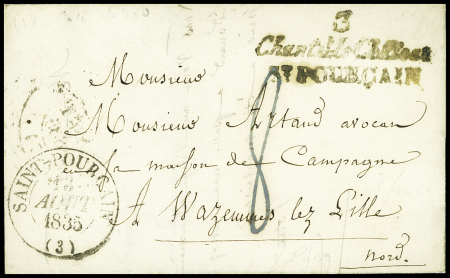 3
Chantelle-Château
ST POURÇAIN
Monsieur
Monsieur Artaud avocat
en sa maison de Campagne
A Wazemmes lez Lille
Nord.
8
SAINT-POURÇAIN
AOUT
1835
(3)